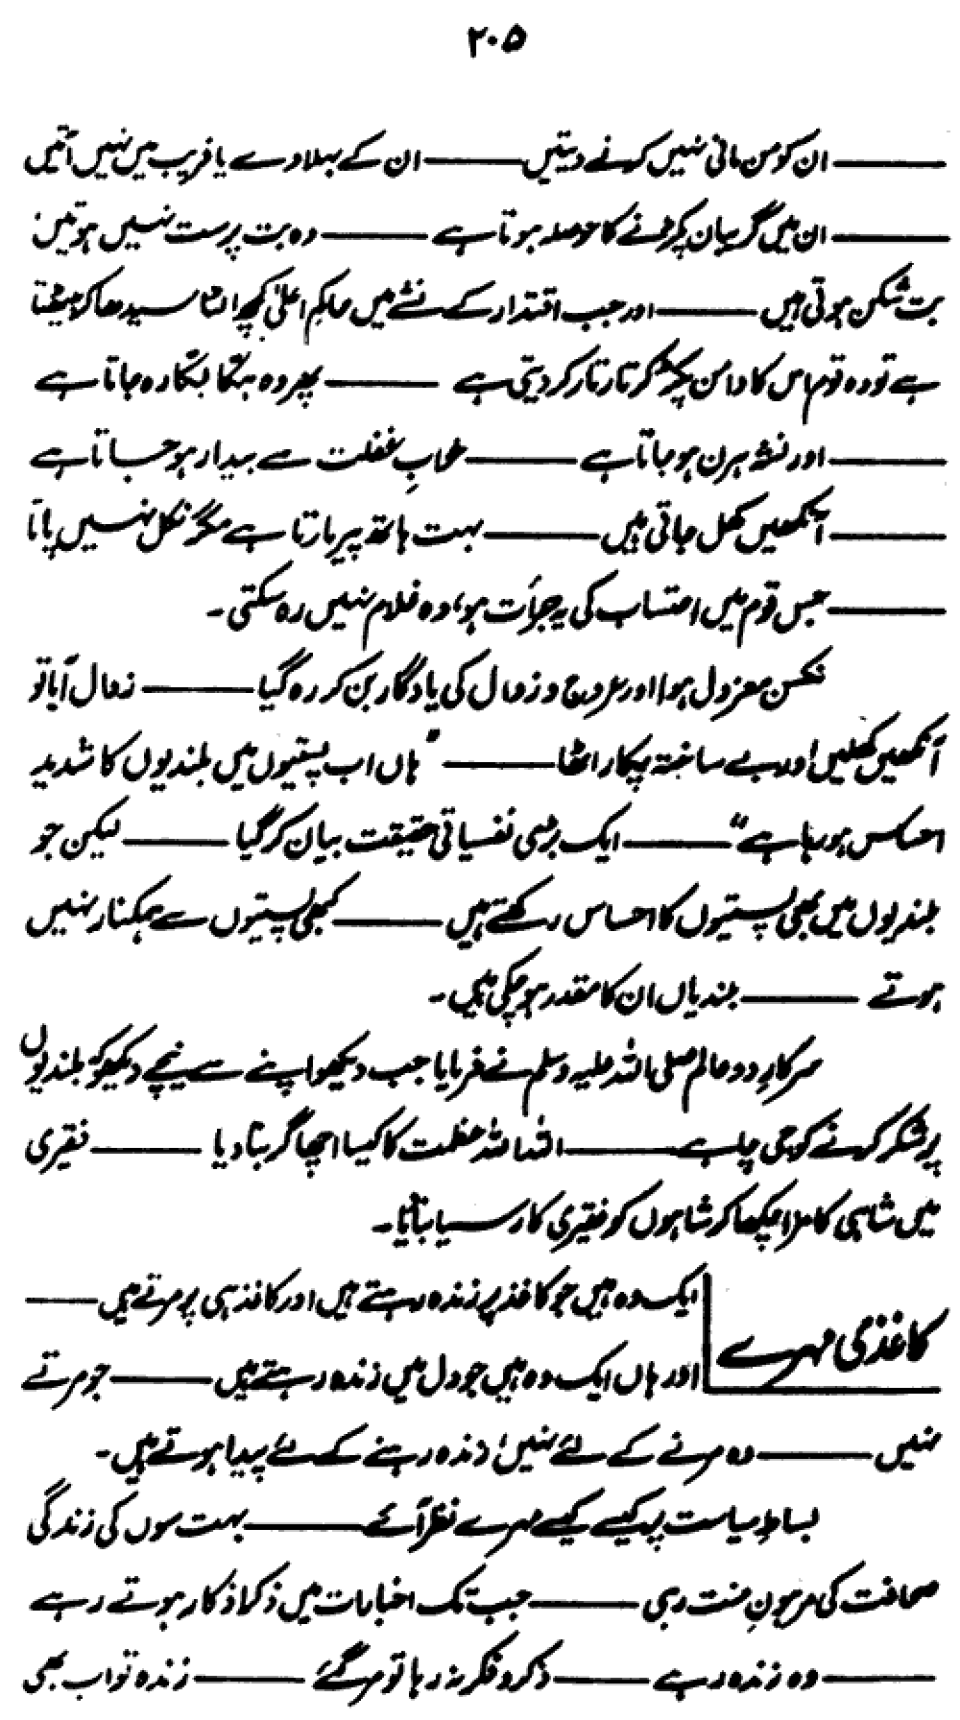 ۲۰۵
——— ان کو من مانی نہیں کرنے دیتیں ——— ان کے بہلاوے یا فریب میں نہیں آتیں
——— ان میں گریبان پکڑنے کا حوصلہ ہوتا ہے ——— وہ بت پرست نہیں ہوتیں
بت شکن ہوتی ہیں ——— اور جب اقتدار کے نشے میں حاکمِ اعلیٰ کچھ الٹا سیدھا کر بیٹھتا
ہے تو وہ قوم اس کا دامن پکڑ کر تار تار کر دیتی ہے ——— پھر وہ ہکّا بکّا رہ جاتا ہے
——— اور نشہ ہرن ہو جاتا ہے ——— خوابِ غفلت سے بیدار ہو جاتا ہے
——— آنکھیں کھل جاتی ہیں ——— بہت ہاتھ پیر مارتا ہے مگر نکل نہیں پاتا
——— جس قوم میں احتساب کی یہ جرأت ہو، وہ غلام نہیں رہ سکتی۔
نکسن معزول ہوا اور عروج و زوال کی یادگار بن کر رہ گیا ——— زوال آیا تو
آنکھیں کھلیں اور بے ساختہ پکار اٹھا ——— "ہاں اب پستیوں میں بلندیوں کا شدید
احساس ہو رہا ہے" ——— ایک بڑی نفسیاتی حقیقت بیان کر گیا ——— لیکن جو
بلندیوں میں بھی پستیوں کا احساس رکھتے ہیں ——— کبھی پستیوں سے ہمکنار نہیں
ہوتے ——— بلندیاں ان کا مقدر ہو چکی ہیں۔
سرکارِ دو عالم صلی اللہ علیہ وسلم نے فرمایا جب دیکھو اپنے سے نیچے دیکھو کہ بلندیوں
پر شکر کرنے کو جی چاہے ——— اللہ اللہ عظمت کا کیسا اچھا گر بتا دیا ——— فقیری
میں شاہی کا مزا چکھا کر شاہوں کو فقیری کا رسیا بنایا۔
کاغذی مہرے
ایک وہ ہیں جو کاغذ پر زندہ رہتے ہیں اور کاغذ ہی پر مرتے ہیں ———
اور ہاں ایک وہ ہیں جو دل میں زندہ رہتے ہیں ——— جو مرتے
نہیں ——— وہ مرنے کے لئے نہیں، زندہ رہنے کے لئے پیدا ہوتے ہیں۔
بساطِ سیاست پر کیسے کیسے مہرے نظر آئے ——— بہت سوں کی زندگی
صحافت کی مرہونِ منت رہی ——— جب تک اخبارات میں ذکر اذکار ہوتے رہے
——— وہ زندہ رہے ——— ذکر و فکر نہ رہا تو مر گئے ——— زندہ تو اب بھی